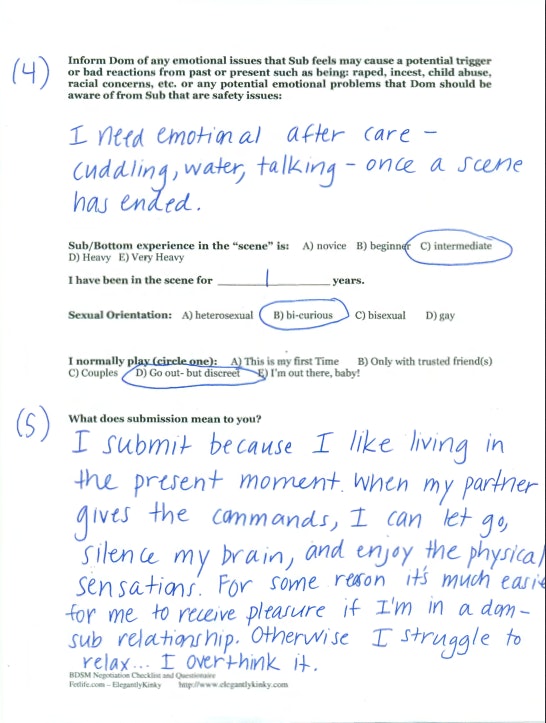 (4)
Inform Dom of any emotional issues that Sub feels may cause a potential trigger
or bad reactions from past or present such as being: raped, incest, child abuse,
racial concerns, etc. or any potential emotional problems that Dom should be
aware of from Sub that are safety issues:
I need emotional after care –
cuddling, water, talking – once a scene
has ended.
Sub/Bottom experience in the “scene” is: A) novice B) beginner C) intermediate
D) Heavy E) Very Heavy
I have been in the scene for ____1____ years.
Sexual Orientation: A) heterosexual B) bi-curious C) bisexual D) gay
I normally play (circle one): A) This is my first Time B) Only with trusted friend(s)
C) Couples D) Go out- but discreet E) I'm out there, baby!
(5)
What does submission mean to you?
I submit because I like living in
the present moment. When my partner
gives the commands, I can let go,
silence my brain, and enjoy the physical
sensations. For some reason it's much easie
for me to receive pleasure if I'm in a dom-
sub relationship. Otherwise I struggle to
relax... I overthink it.
BDSM Negotiation Checklist and Questionaire
Fetlife.com – ElegantlyKinky http://www.elegantlykinky.com